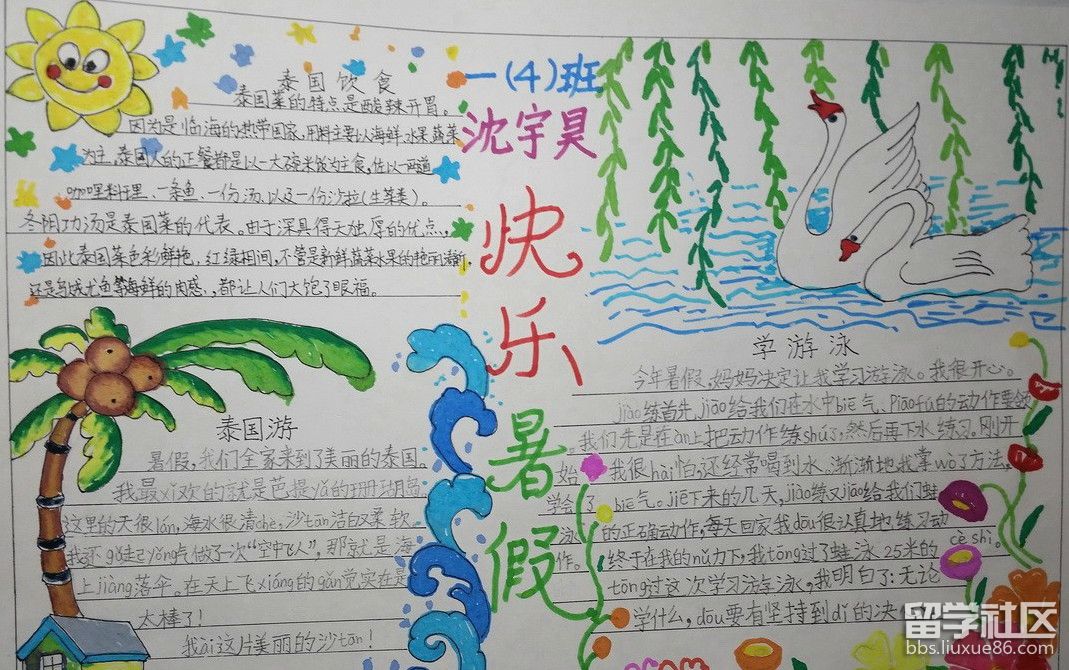 泰国饮食
泰国菜的特点是酸辣开胃。
因为是临海的热带国家,用料主要以海鲜、水果、蔬菜
为主,泰国人的正餐都是以一大碗米饭为主食,佐以一两道
咖哩料理、一条鱼、一份汤、以及一份沙拉(生菜类)。
冬阴功汤是泰国菜的代表。由于深具得天独厚的优点,
因此泰国菜色彩鲜艳,红绿相间,不管是新鲜蔬菜水果的艳丽清新,
还是乌贼尤鱼等海鲜的肉感,都让人们大饱了眼福。
一(4)班
沈宇昊
快乐暑假
泰国游
暑假,我们全家来到了美丽的泰国。
我最xǐ欢的就是芭提yǎ的珊瑚岛
这里的天很lán,海水很清chè,沙tān洁白又柔软
我还gǔ起yǒng气做了一次“空中飞人”,那就是海
上jiàng落伞。在天上飞xiáng的gǎn觉实在是
太棒了!
我ài这片美丽的沙tān!
学游泳
今年暑假,妈妈决定让我学习游泳。我很开心。
jiào练首先jiāo给我们在水中biē气、piāofú的动作要领
我们先是在àn上把动作练shú了,然后再下水练习。刚开
始,我很hài怕,还经常喝到水。渐渐地我掌wò了方法,
学会了biē气。jiē下来的几天,jiào练又jiāo给我们蛙
泳的正确动作,每天回家我dōu很认真地练习动
作。终于在我的nǔ力下,我tōng过了蛙泳25米的cè shì。
tōng过这次学习游泳,我明白了:无论
学什么,dōu要有坚持到dǐ的决
留学社区
bbs.liuxue86.com